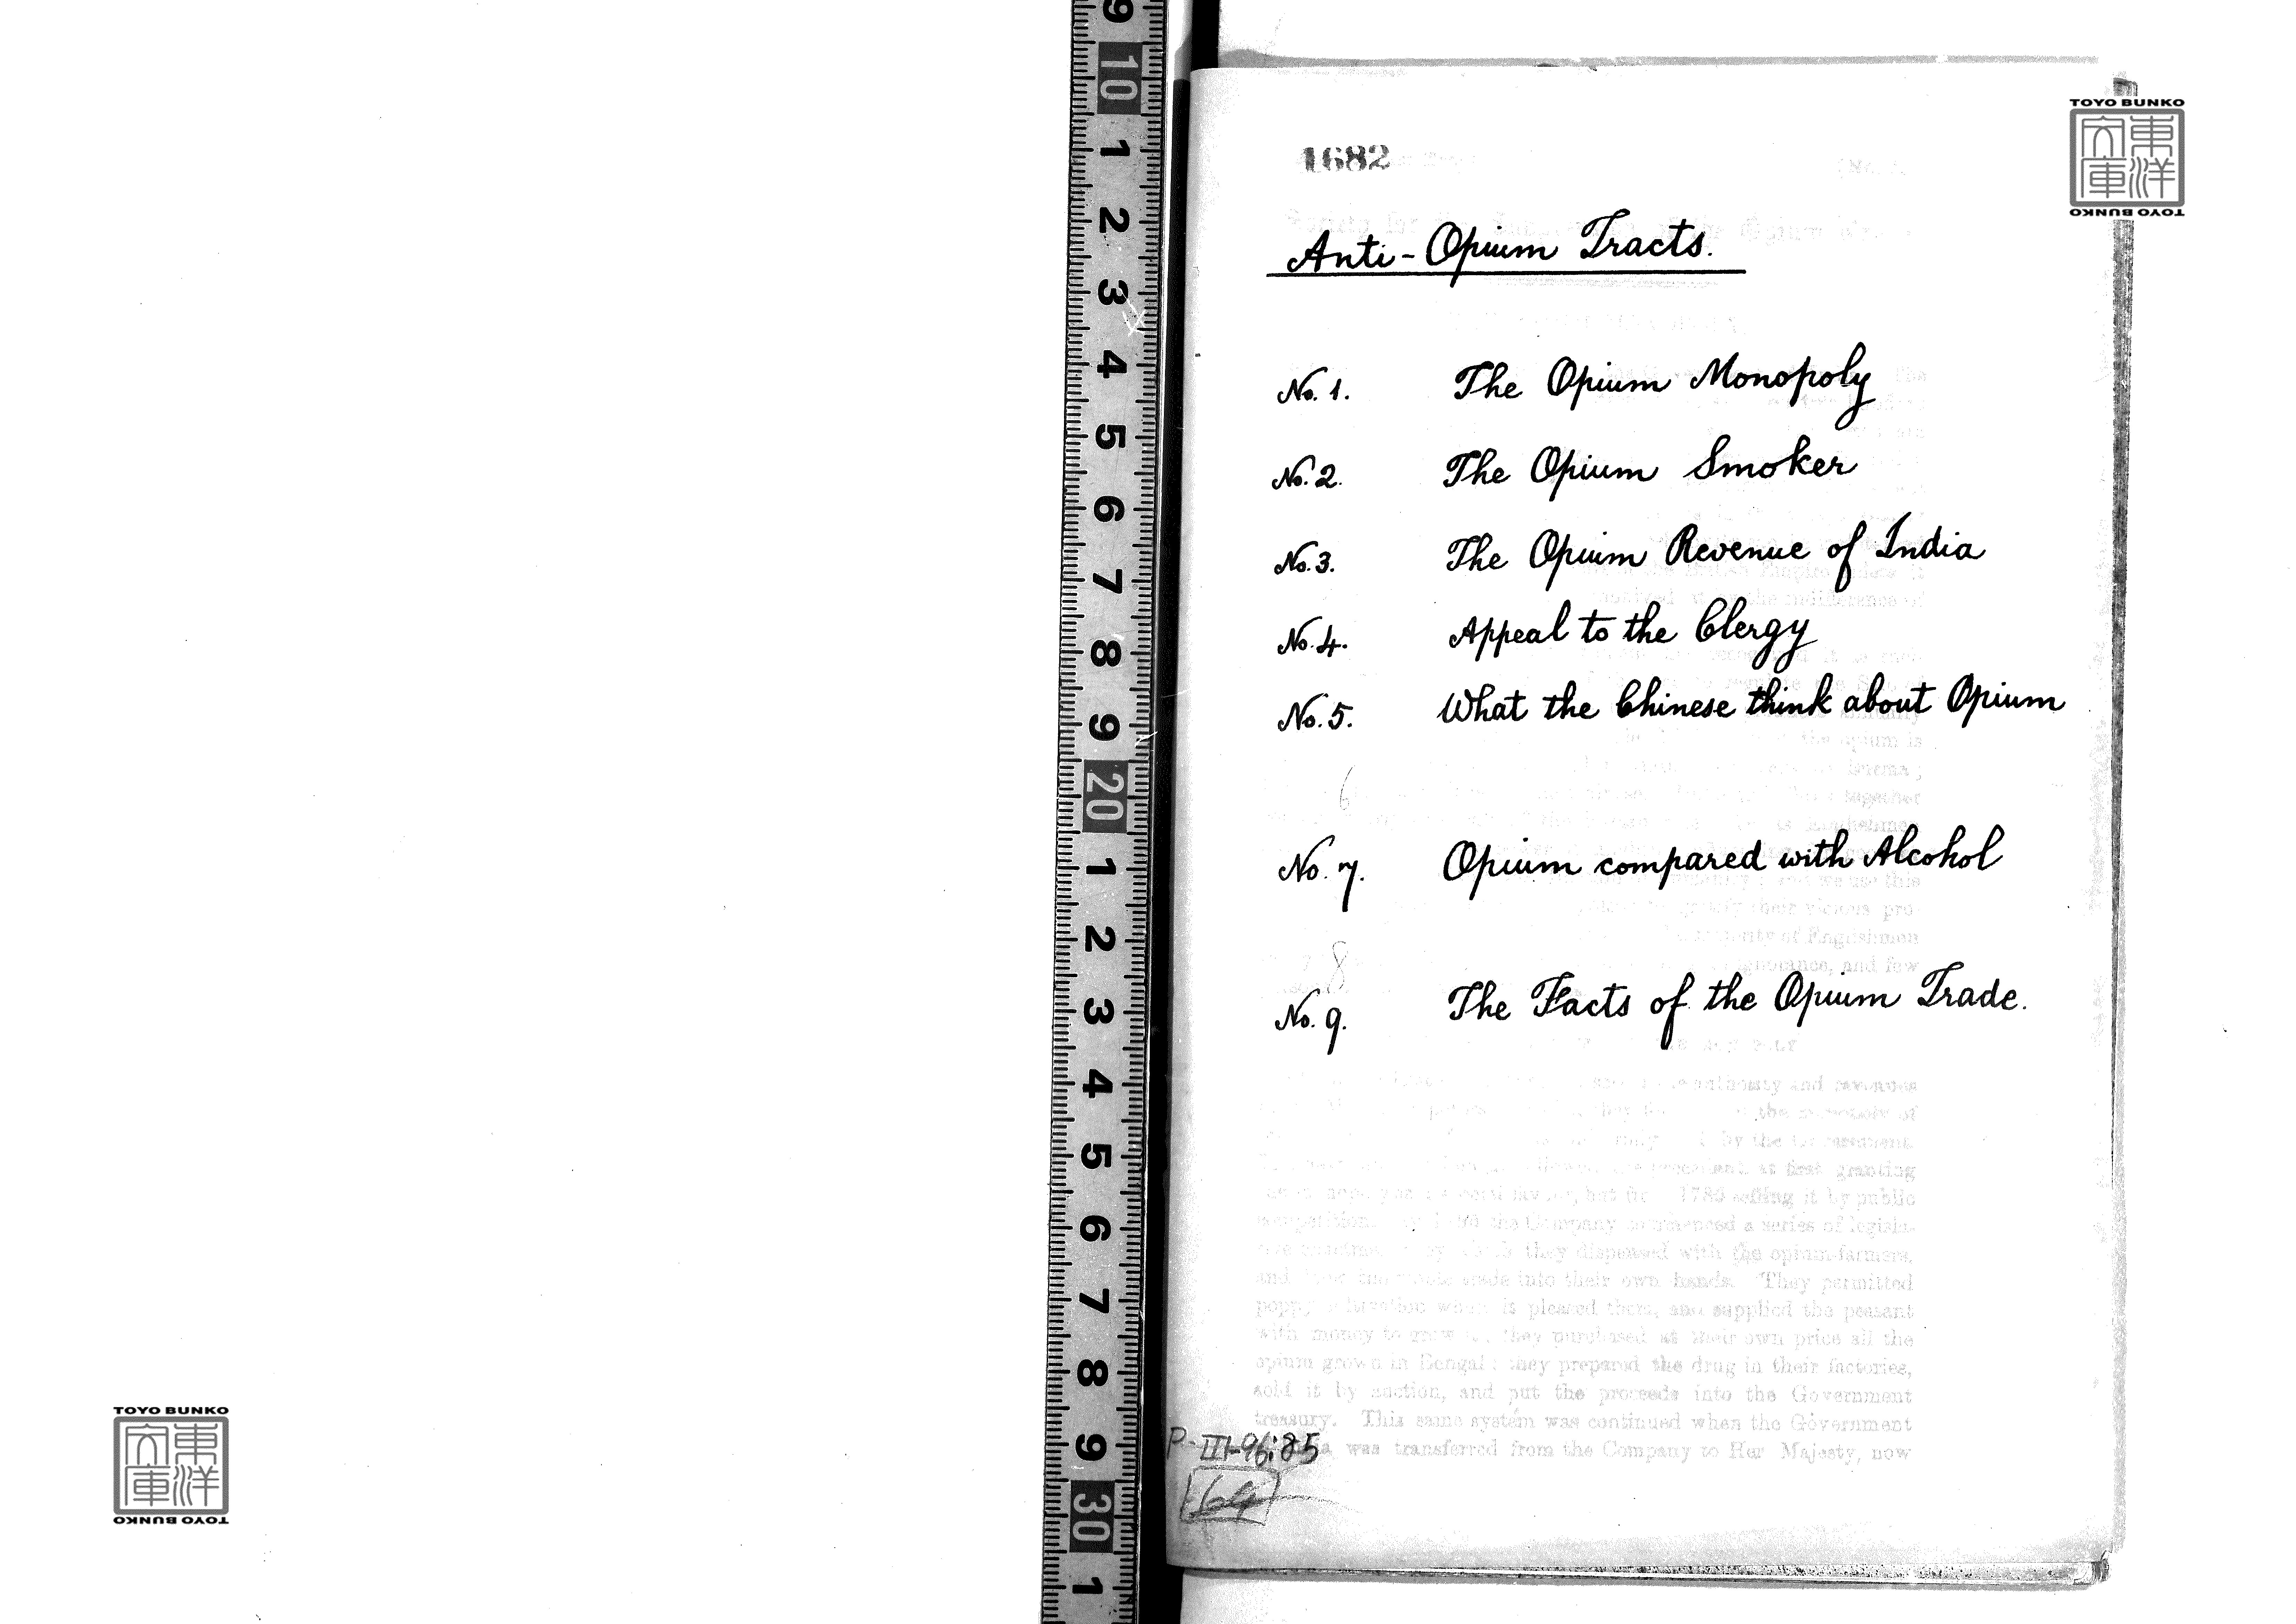 9
10
1
2
3
4
5
6
7
8
9
20
1
2
3
4
5
6
7
8
9
30
1
TOYO BUNKO
東洋文庫
TOYO BUNKO
1682
Anti-Opium Tracts.
No. 1. The Opium Monopoly
No. 2. The Opium Smoker
No. 3. The Opium Revenue of India
No. 4. Appeal to the Clergy
No. 5. What the Chinese think about Opium
6
No. 7. Opium compared with Alcohol
8
No. 9. The Facts of the Opium Trade.
and few
authority and revenues
by the Government
at first granting
1785 selling it by public
the Company commenced a series of legisla-
they dispensed with the opium-farmers,
into their own hands. They permitted
pleased them, and supplied the peasant
with money to grow it; they purchased at their own price all the
opium grown in Bengal; they prepared the drug in their factories,
sold it by auction, and put the proceeds into the Government
treasury. This same system was continued when the Government
was transferred from the Company to Her Majesty, now
P-III-96:85
64
TOYO BUNKO
東洋文庫
TOYO BUNKO